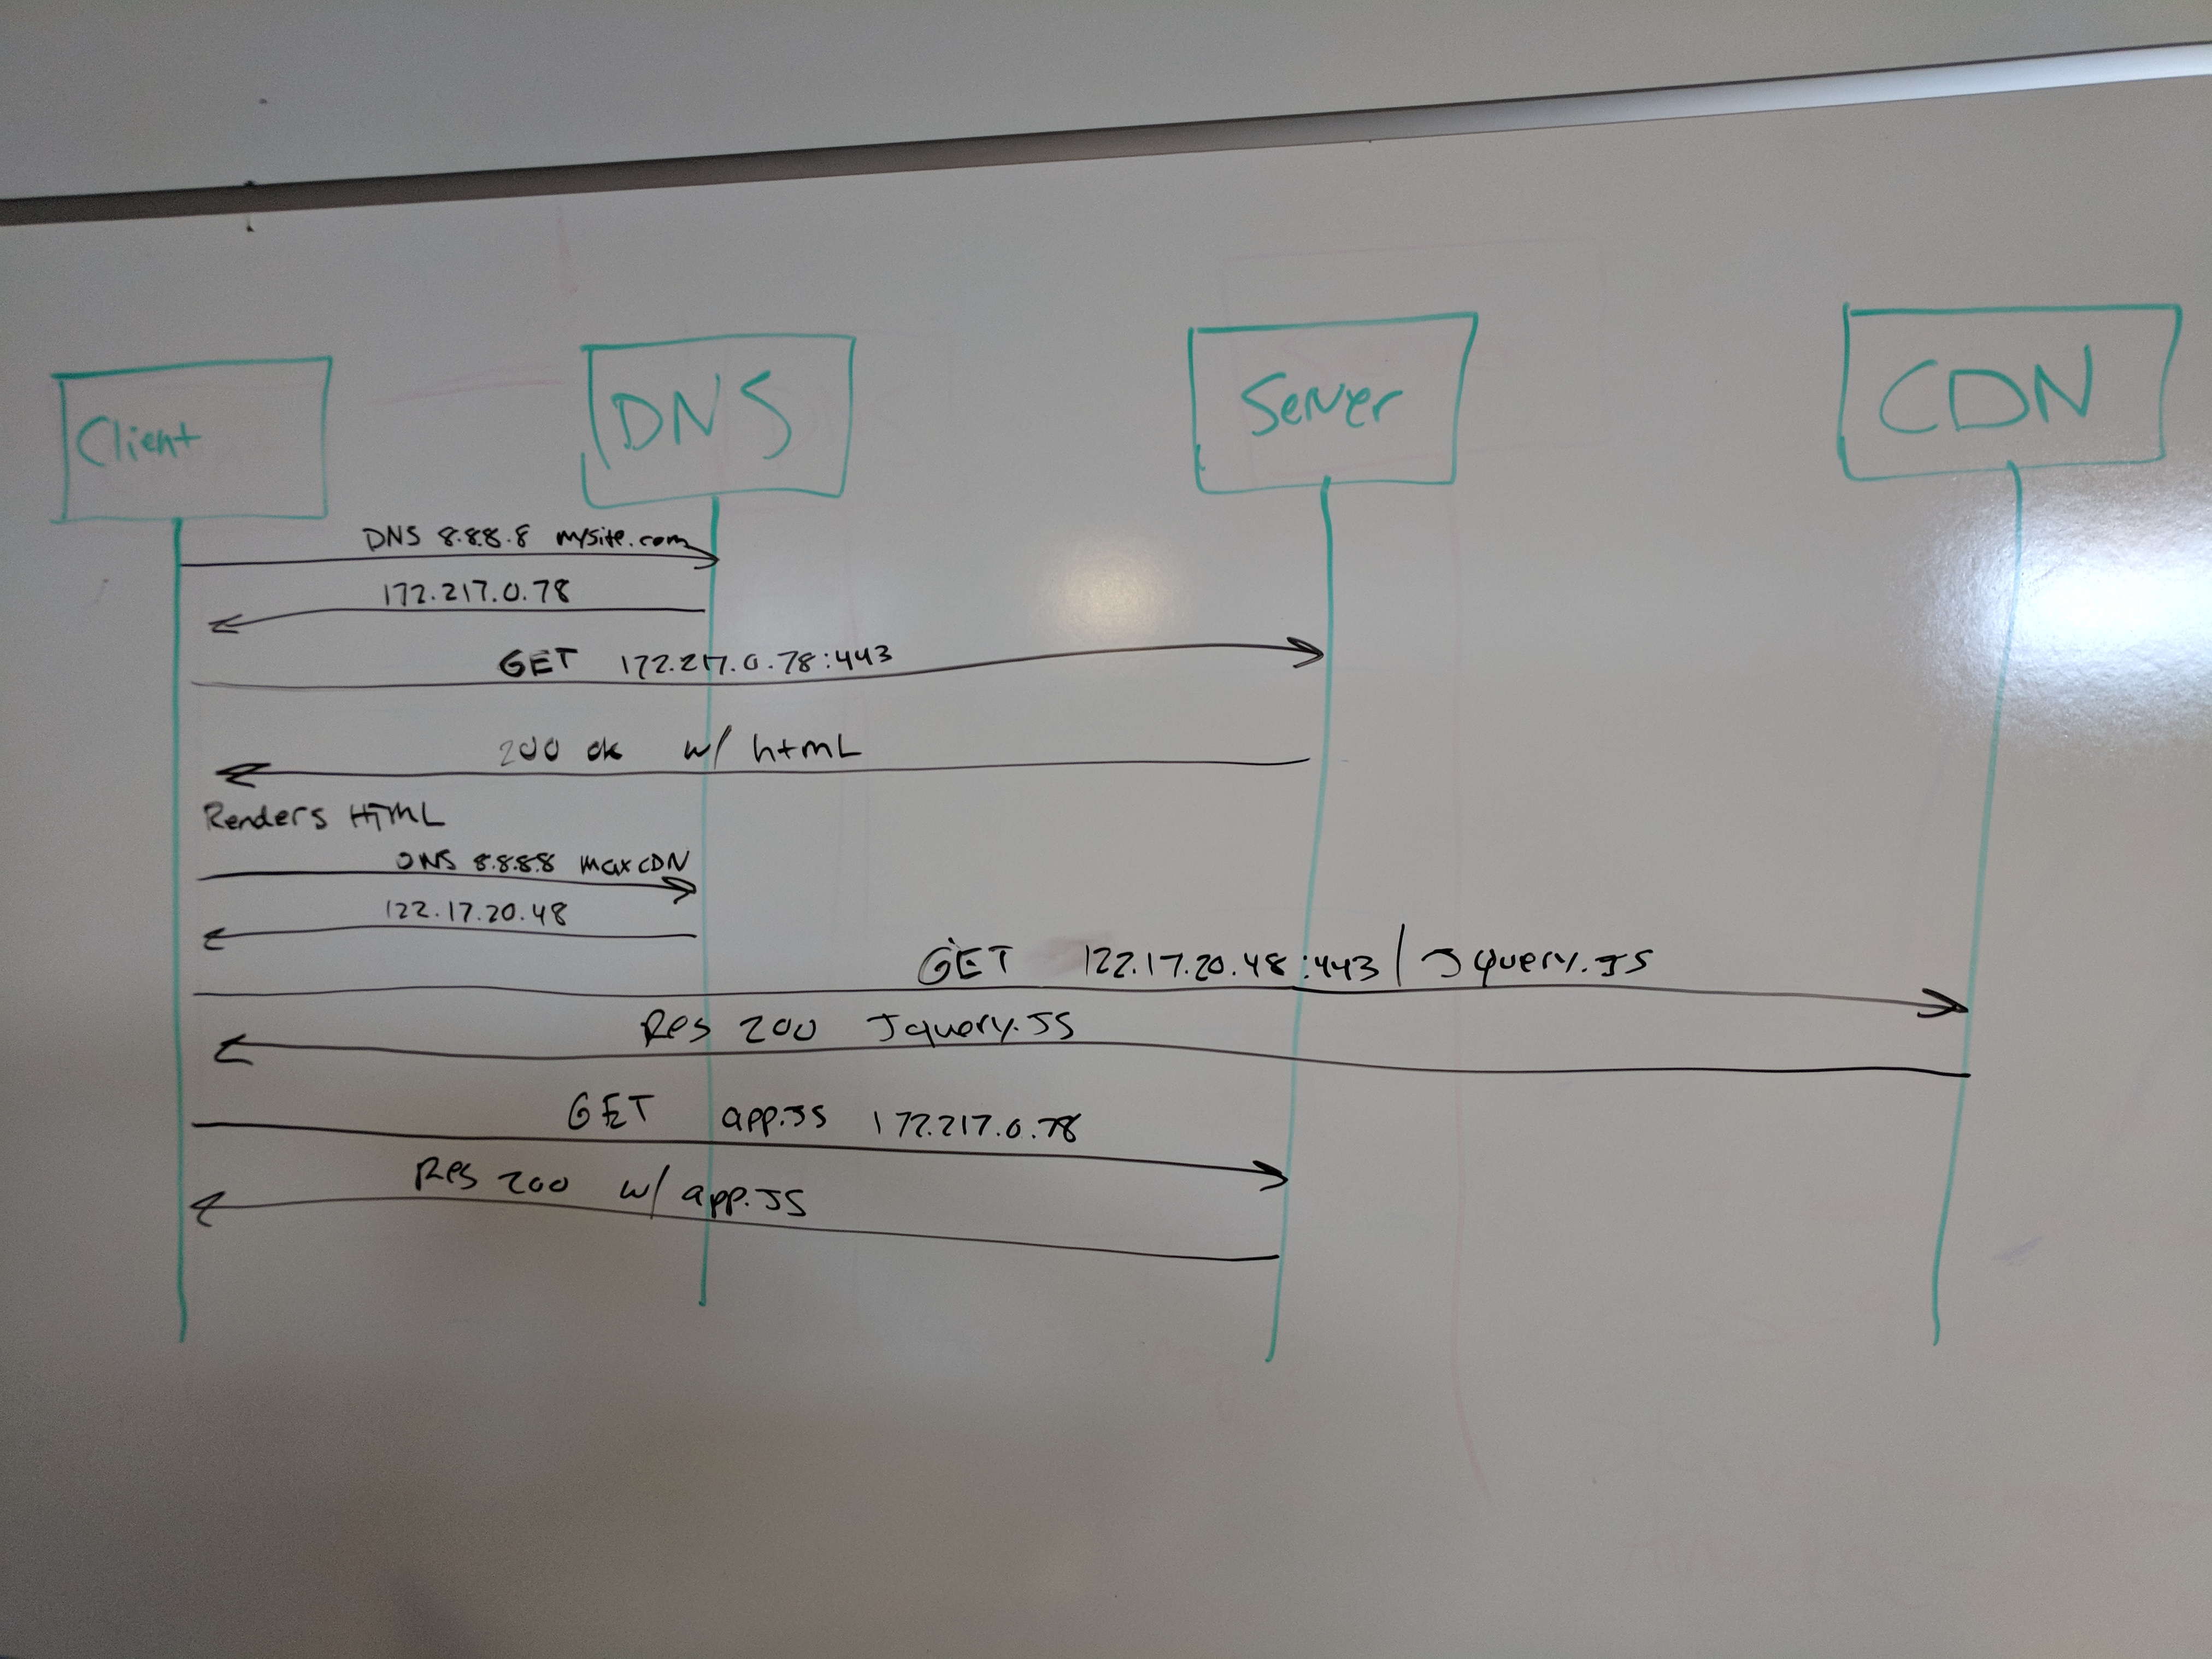 Client
DNS
Server
CDN
DNS 8.8.8.8 mysite.com
172.217.0.78
GET 172.217.0.78:443
200 ok w/ htmL
Renders HTML
DNS 8.8.8.8 maxCDN
122.17.20.48
GET 122.17.20.48:443/Jquery.JS
Res 200 Jquery.JS
GET app.JS 172.217.0.78
Res 200 w/ app.JS